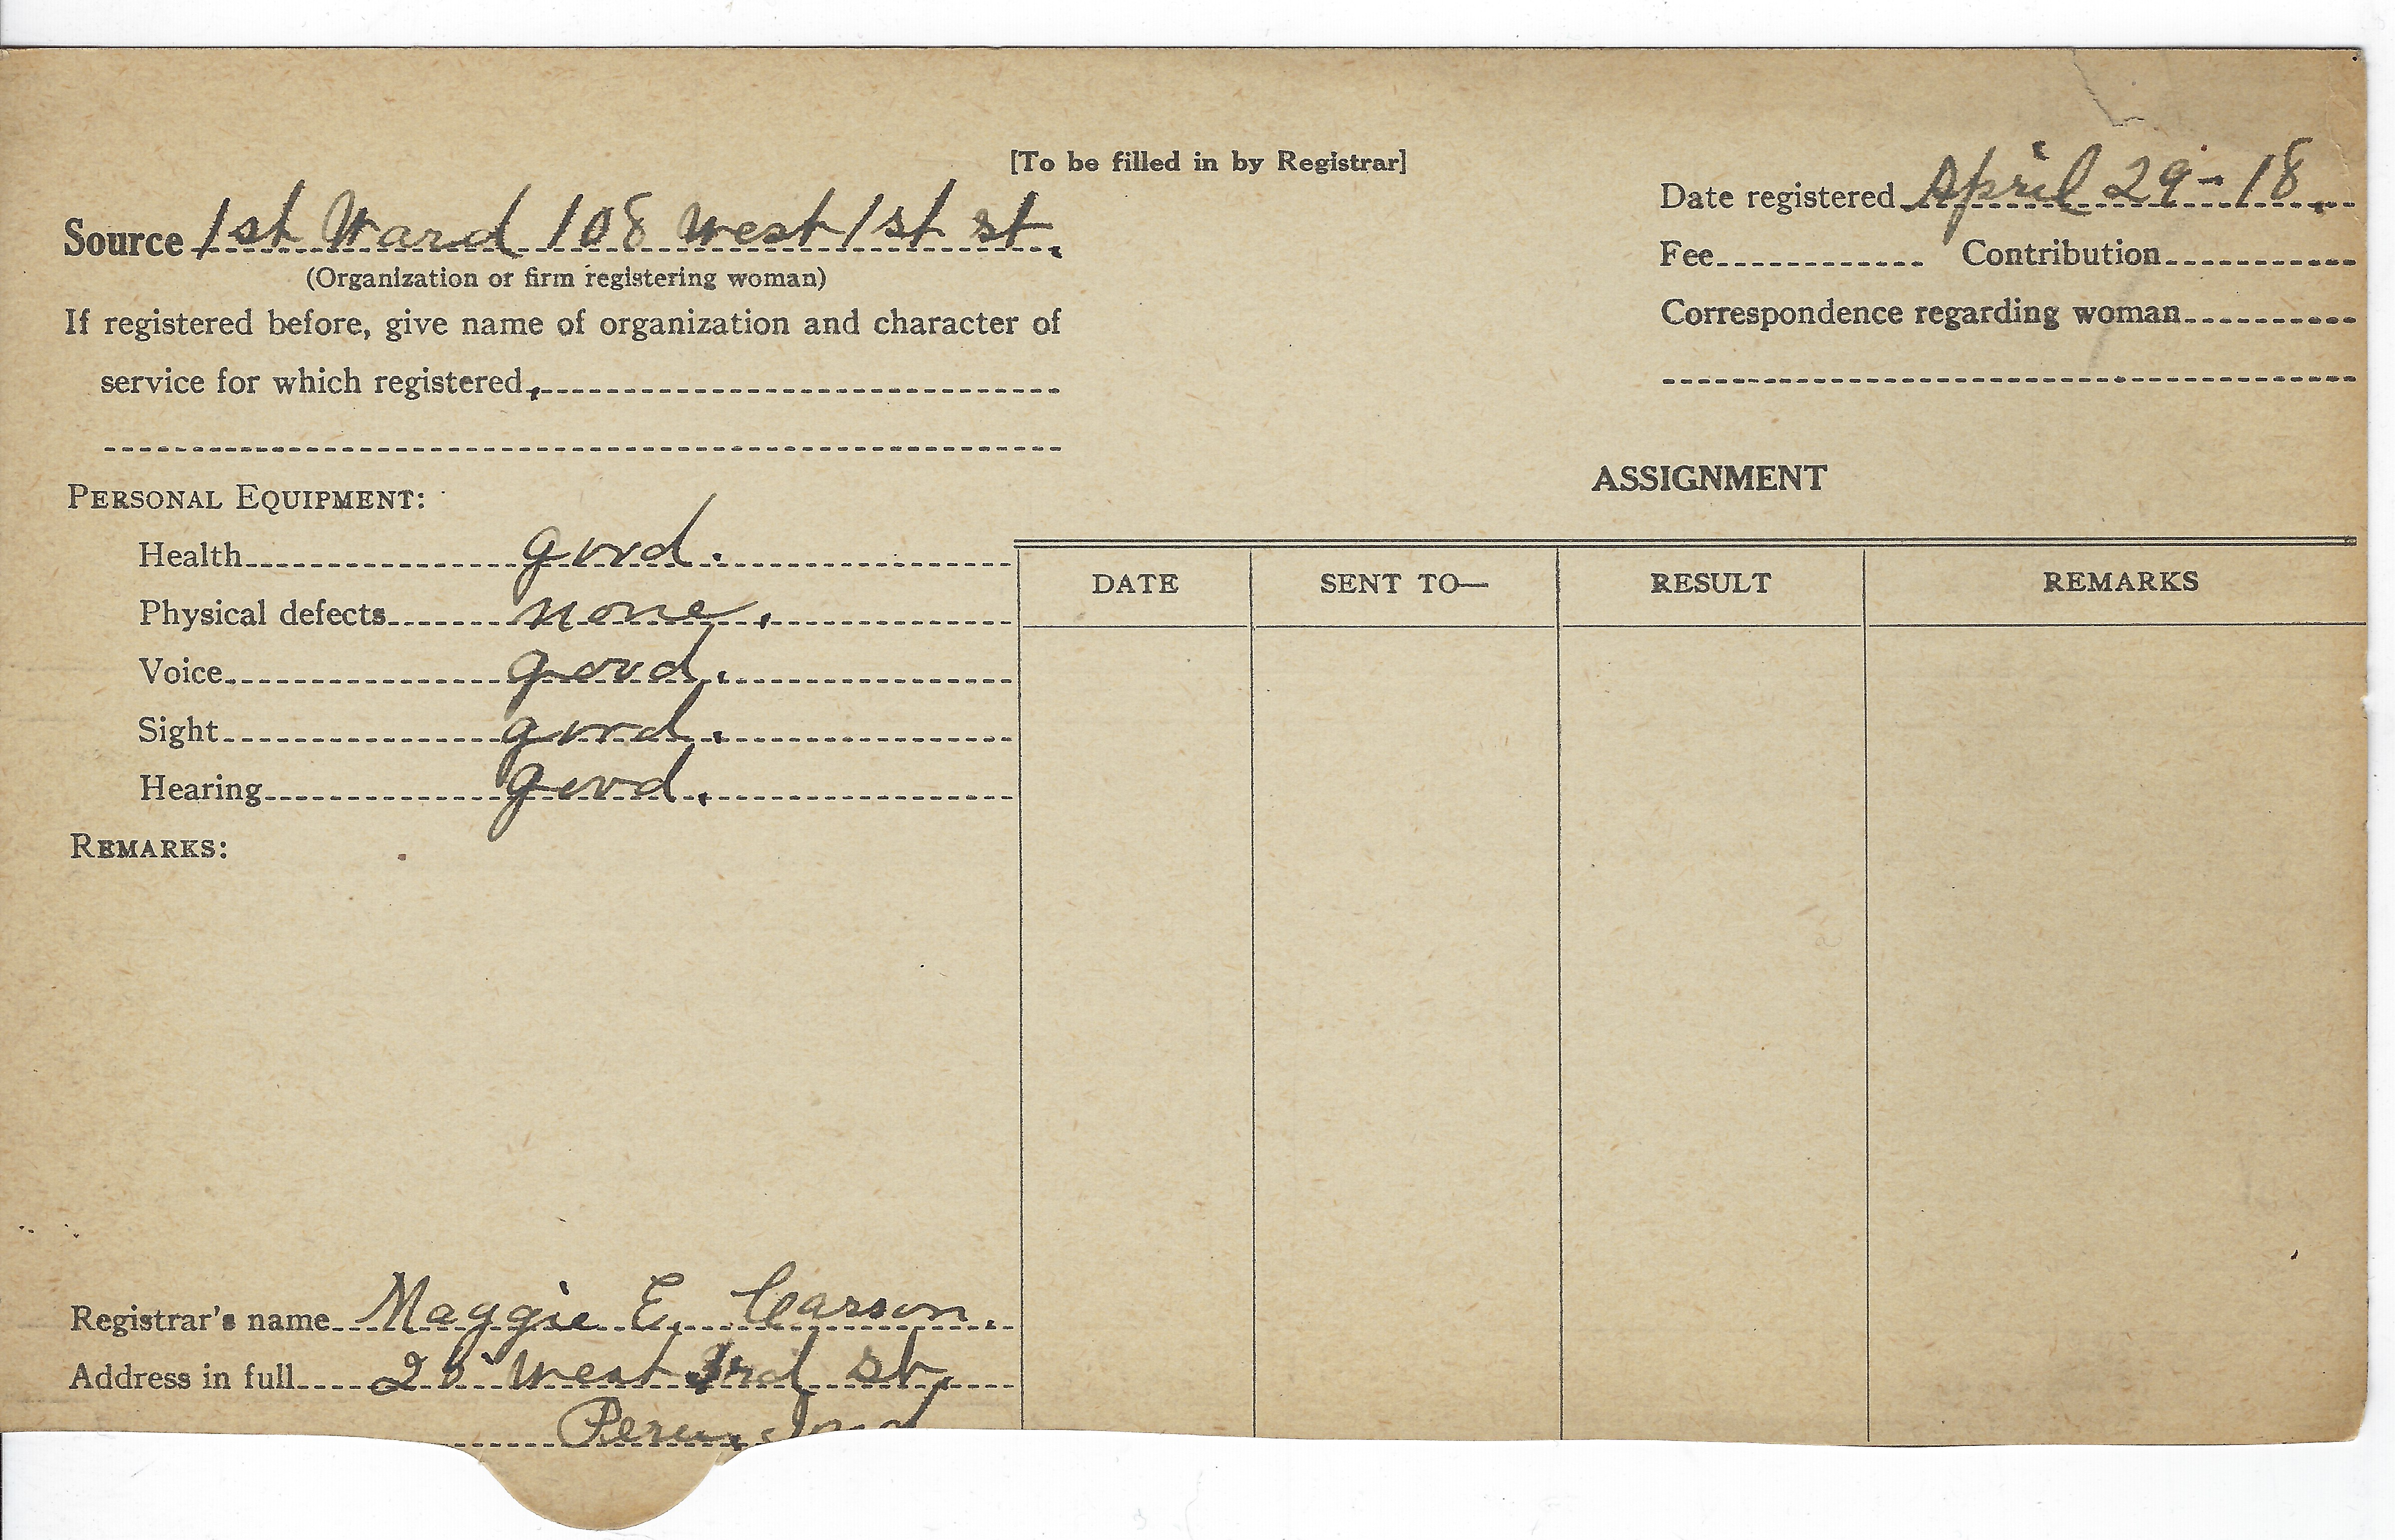 [To be filled in by Registrar]
Source 1st Ward 108 West 1st st.
(Organization or firm registering woman)
If registered before, give name of organization and character of
service for which registered,
Date registered April 29-18.
Fee Contribution
Correspondence regarding woman
PERSONAL EQUIPMENT:
Health good.
Physical defects none.
Voice good.
Sight good.
Hearing good.
REMARKS:
Registrar's name Maggie E. Carson.
Address in full West 3rd st.
Peru, Ind
ASSIGNMENT
DATE SENT TO— RESULT REMARKS